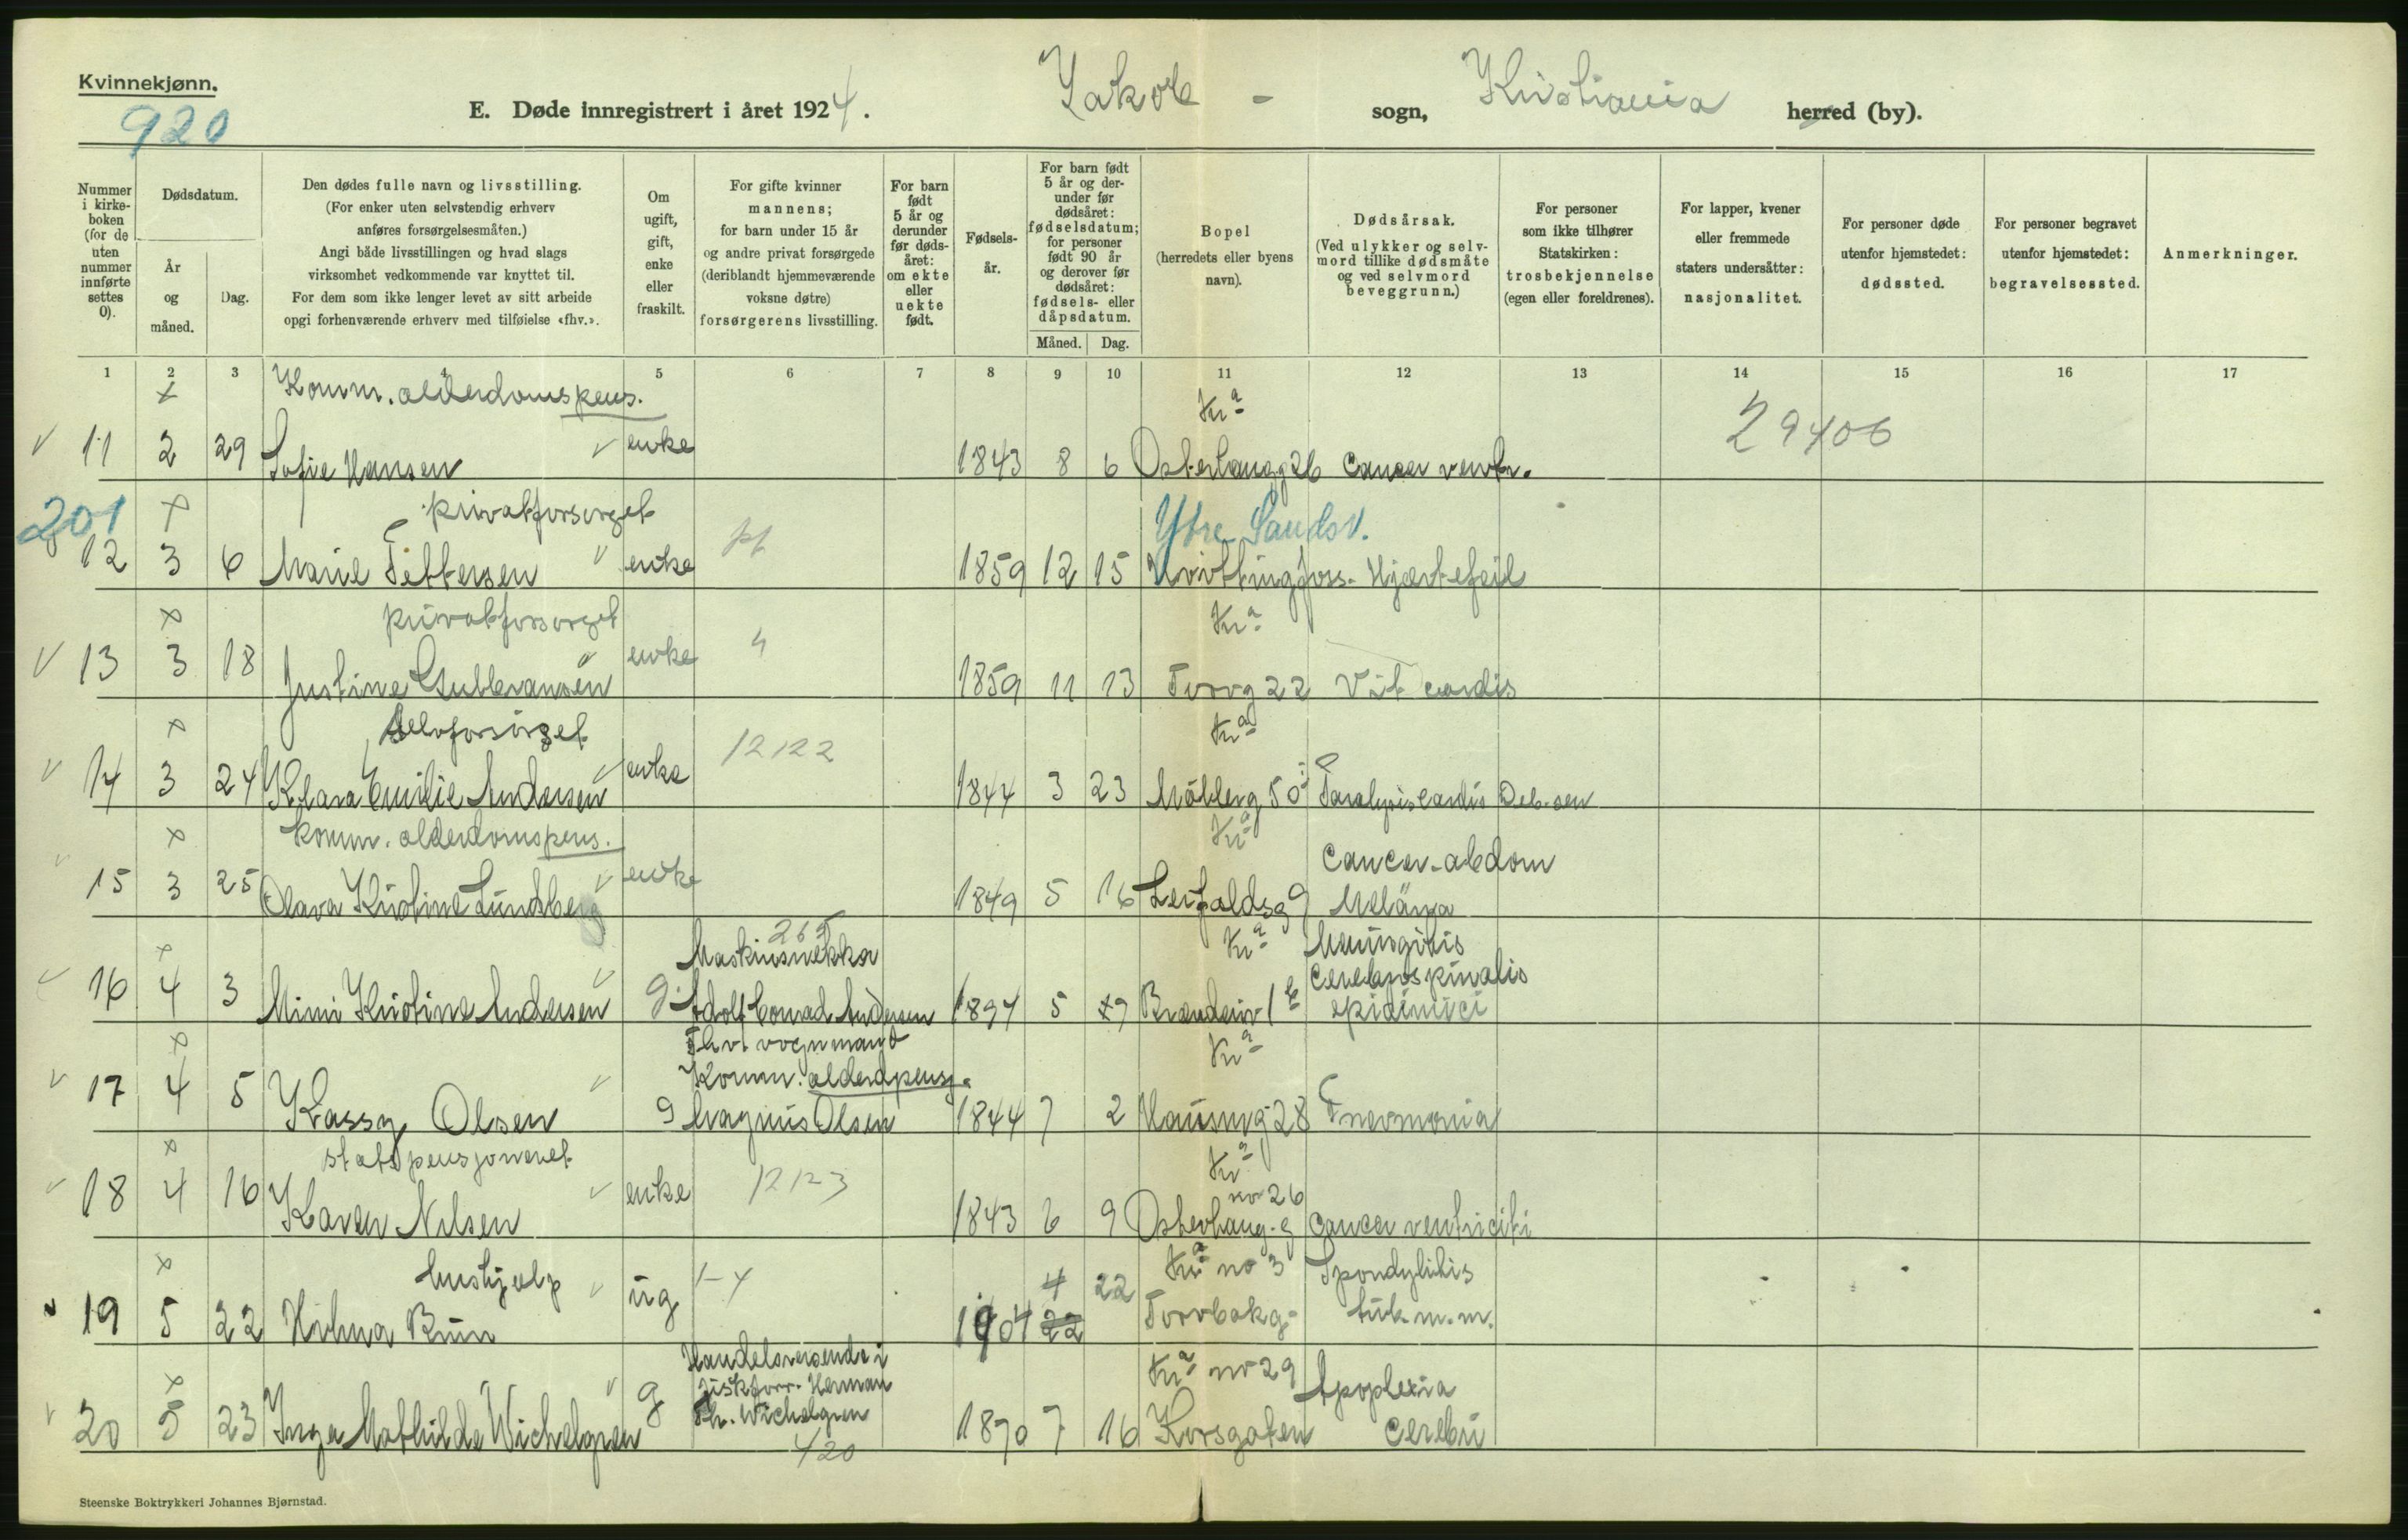 Kvinnekjønn.
920
E. Døde innregistrert i året 1924.
Jakob - sogn, Kristiania herred (by).
Nummer i kirkeboken (for de uten nummer innførte settes 0).
Dødsdatum.
År og måned.
Dag.
Den dødes fulle navn og livsstilling.
(For enker uten selvstendig erhverv anføres forsørgelsesmåten.)
Angi både livsstillingen og hvad slags virksomhet vedkommende var knyttet til.
For dem som ikke lenger levet av sitt arbeide opgi forhenværende erhverv med tilføielse «fhv.».
Om ugift, gift, enke eller fraskilt.
For gifte kvinner mannens; for barn under 15 år og andre privat forsørgede (deriblandt hjemmeværende voksne døtre) forsørgerens livsstilling.
For barn født 5 år og derunder før dødsåret: om ekte eller uekte født.
Fødselsår.
For barn født 5 år og derunder før dødsåret: fødselsdatum; for personer født 90 år og derover før dødsåret: fødsels- eller dåpsdatum.
Måned.
Dag.
Bopel (herredets eller byens navn).
Dødsårsak.
(Ved ulykker og selvmord tillike dødsmåte og ved selvmord beveggrunn.)
For personer som ikke tilhører Statskirken: trosbekjennelse (egen eller foreldrenes).
For lapper, kvener eller fremmede staters undersåtter: nasjonalitet.
For personer døde utenfor hjemstedet: dødssted.
For personer begravet utenfor hjemstedet: begravelsessted.
Anmerkninger.
1 2 3 4 5 6 7 8 9 10 11 12 13 14 15 16 17
x Komm. alderdomspens. Kra
29406
11 2 29 Sofie Hansen enke 1843 8 6 Osterhausg 26 Cancer ventr.
201 x privatforsørget Ytre Sandsv.
12 3 6 Marie Pettersen enke pf 1859 12 15 Hvittingfoss. Hjertefeil
x privatforsørget Kra
13 3 18 Justine Gulbransen enke " 1859 11 13 Torvg 22 Vit cordis
x selvforsørget Kra
14 3 24 Klara Emilie Andersen enke 12122 1844 3 23 Möllerg 50 Paralysis cordis Deb. sen
x Komm. alderdomspens. Kra
15 3 25 Olava Kristine Lundberg enke 1849 5 16 Leirfaldsg 9 Cancer abdom Meläna
x 265 Maskinsnekker Kra Meningitis
16 4 3 Mimi Kristine Andersen g. Adolf Conrad Andersen 1894 5 29 Brenneriv 1 b Cerebrospinalis epidimici
x Fhv. vognmand Kra
Komm. alderdpensj.
17 4 5 Kassy Olsen g Magnus Olsen 1844 7 2 Hausmg 28 Pneumonia
x statspensjoneret Kra
18 4 16 Karen Nilsen enke 12123 1843 6 9 Osterhaus. g no 26 Cancer ventriculi
x hushjelp 1-4 4 22 Kra no 3 Spondylitis
19 5 22 Hilma Bruu ug 1904 22 Torvbakg. tub. m. m.
x Handelsreisende i Kra no 29 Apoplexia
fiskforr. Herman
20 5 23 Inga Mathilde Wichelgren g Th. Wichelgren 1870 7 16 Korsgaten cerebri
420
Steenske Boktrykkeri Johannes Bjørnstad.